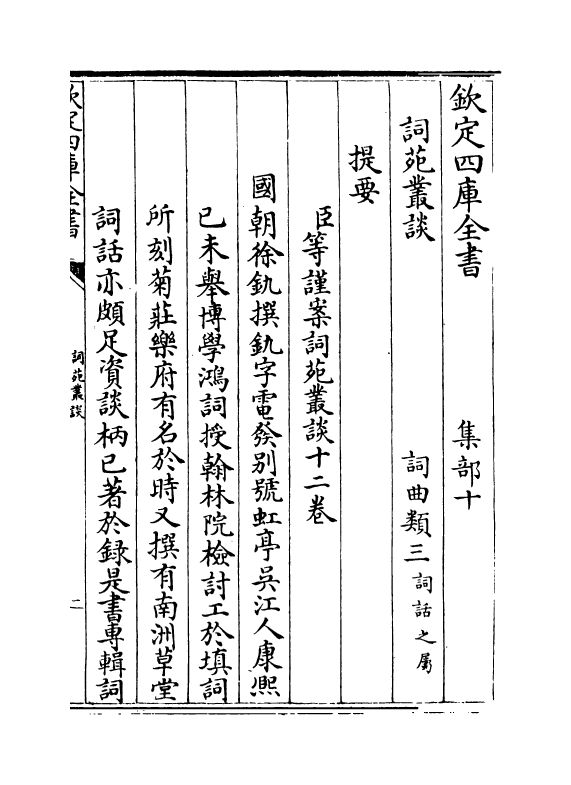 欽定四庫全書　集部十
詞苑叢談　詞曲類三詞話之屬
提要
臣等謹案詞苑叢談十二卷
國朝徐釚撰釚字電發別號虹亭吳江人康熙
己未舉博學鴻詞授翰林院檢討工於填詞
所刻菊莊樂府有名於時又撰有南洲草堂
詞話亦頗足資談柄已著於録是書專輯詞
欽定四庫全書
詞苑叢談